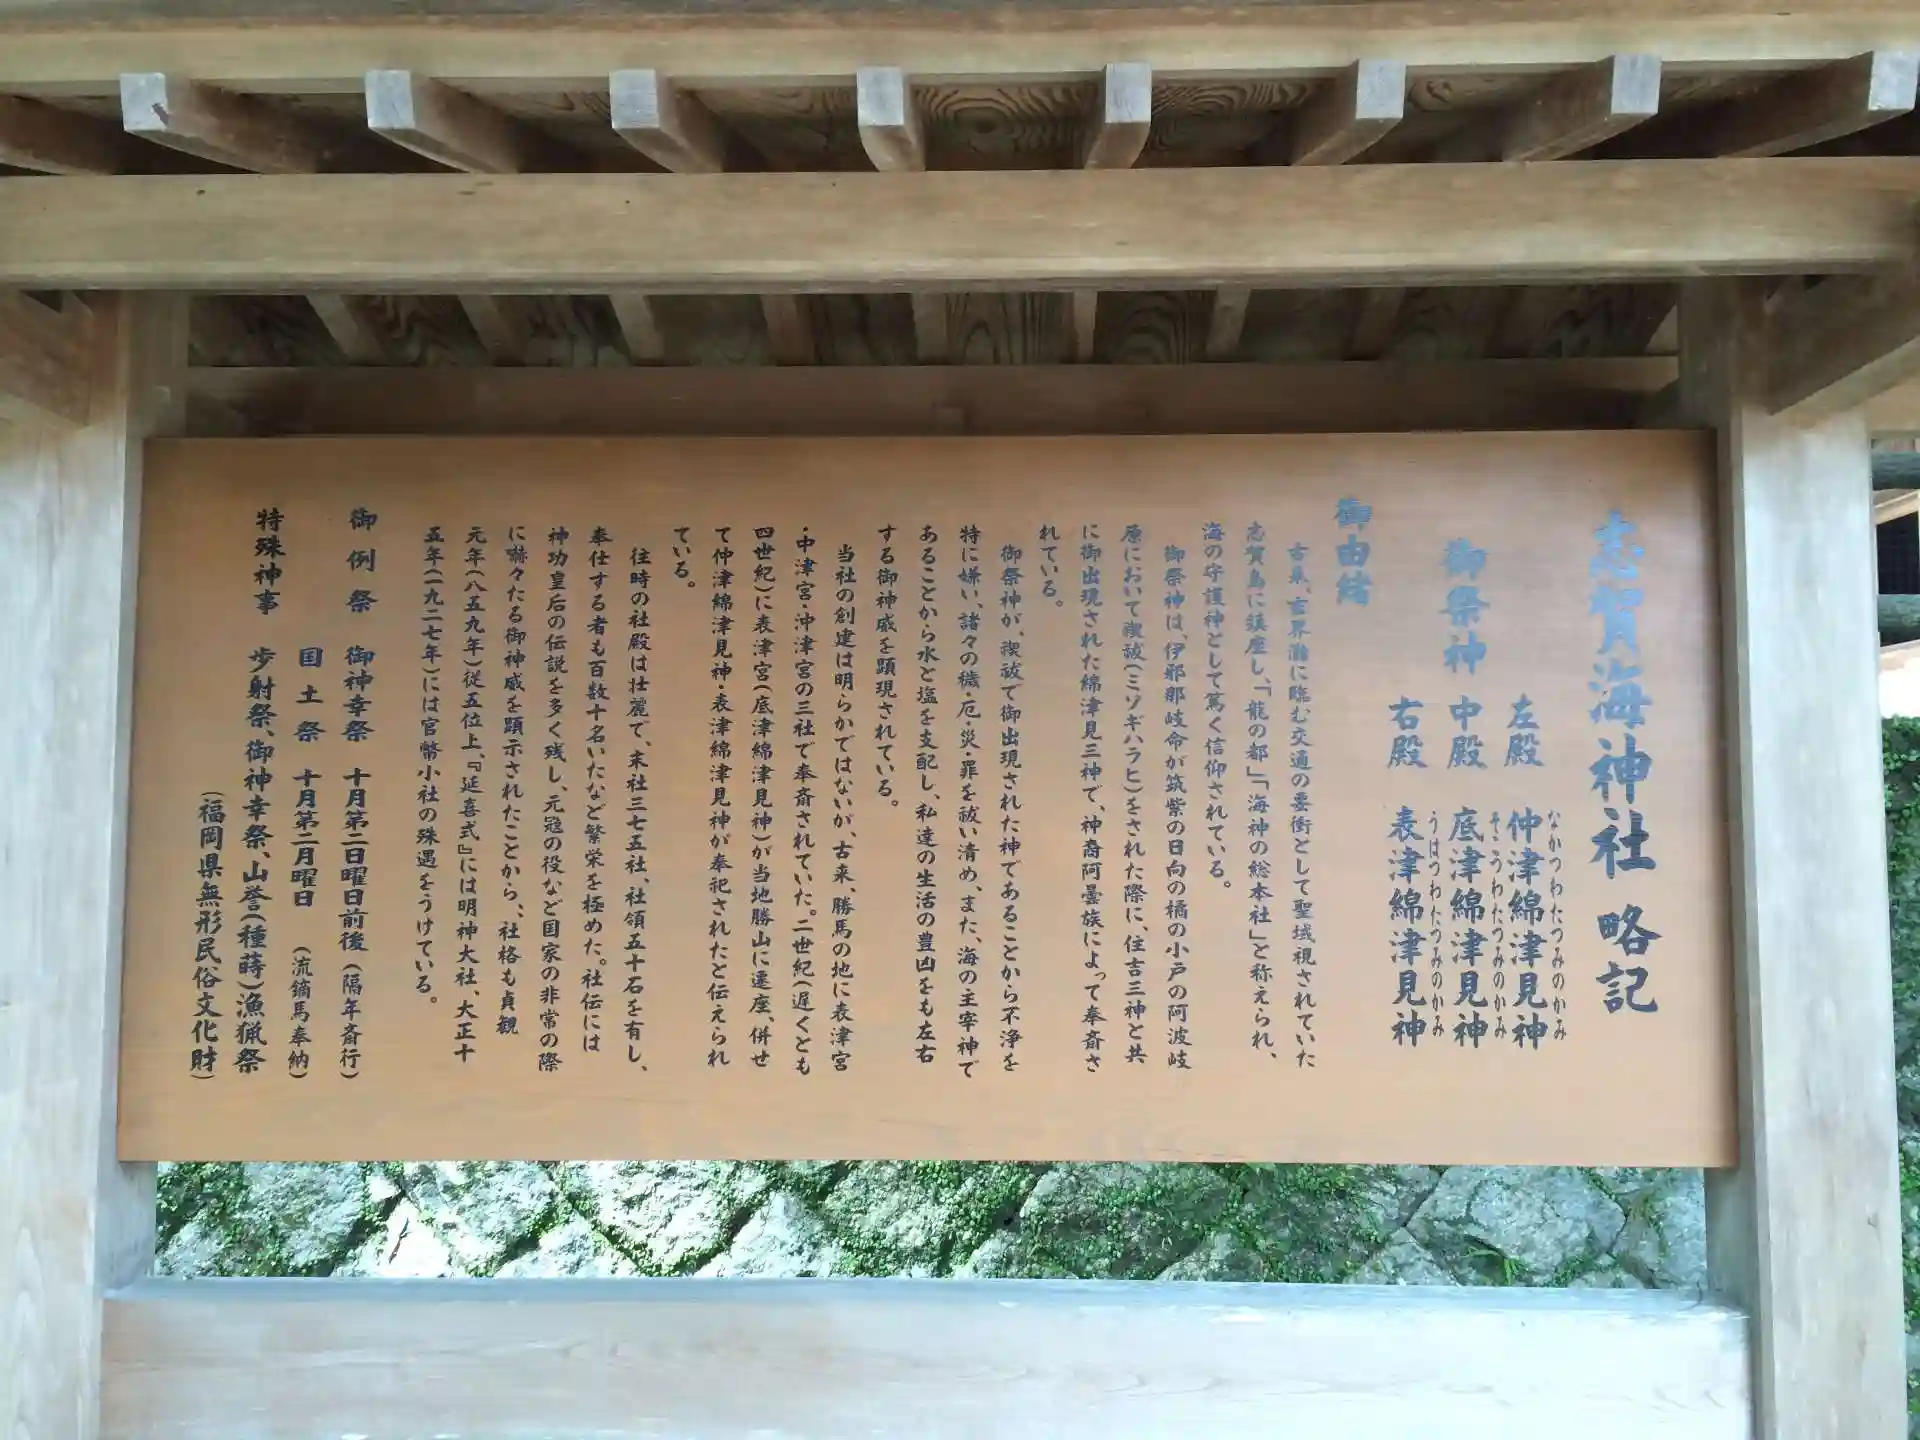 志賀海神社 略記
御祭神
左殿 仲津綿津見神
なかつわたつみのかみ
中殿 底津綿津見神
そこつわたつみのかみ
右殿 表津綿津見神
うはつわたつみのかみ
御由緒
古来、玄界灘に臨む交通の要衝として聖域視されていた
志賀島に鎮座し、「龍の都」「海神の総本社」と称えられ、
海の守護神として篤く信仰されている。
御祭神は、伊邪那岐命が筑紫の日向の橘の小戸の阿波岐
原において禊祓(ミソギハラヒ)をされた際に、住吉三神と共
に御出現された綿津見三神で、神裔阿曇族によって奉斎さ
れている。
御祭神が、禊祓で御出現された神であることから不浄を
特に嫌い、諸々の穢・厄・災・罪を祓い清め、また、海の主宰神で
あることから水と塩を支配し、私達の生活の豊凶をも左右
する御神威を顕現されている。
当社の創建は明らかではないが、古来、勝馬の地に表津宮
・中津宮・沖津宮の三社で奉斎されていた。二世紀(遅くとも
四世紀)に表津宮(底津綿津見神)が当地勝山に遷座、併せ
て仲津綿津見神・表津綿津見神が奉祀されたと伝えられ
ている。
往時の社殿は壮麗で、末社三七五社、社領五十石を有し、
奉仕する者も百数十名いたなど繁栄を極めた。社伝には
神功皇后の伝説を多く残し、元寇の役など国家の非常の際
に赫々たる御神威を顕示されたことから、社格も貞観
元年(八五九年)従五位上、『延喜式』には明神大社、大正十
五年(一九二七年)には官幣小社の殊遇をうけている。
御例祭 御神幸祭 十月第二日曜日前後(隔年斎行)
国土祭 十月第二月曜日 (流鏑馬奉納)
特殊神事 歩射祭、御神幸祭、山誉(種蒔)漁猟祭
(福岡県無形民俗文化財)